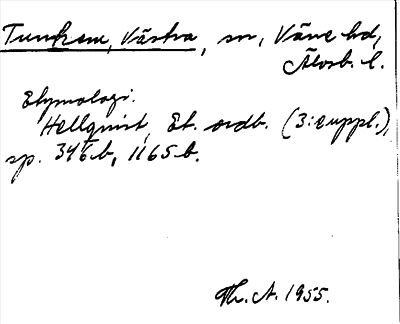 Tunhem, Västra, sn, Väne hd,
Älvsb. l.
Etymologi.
Hellquist, Et. ordb. (3:e uppl.),
sp. 346b, 1165b.
Th. A. 1955.